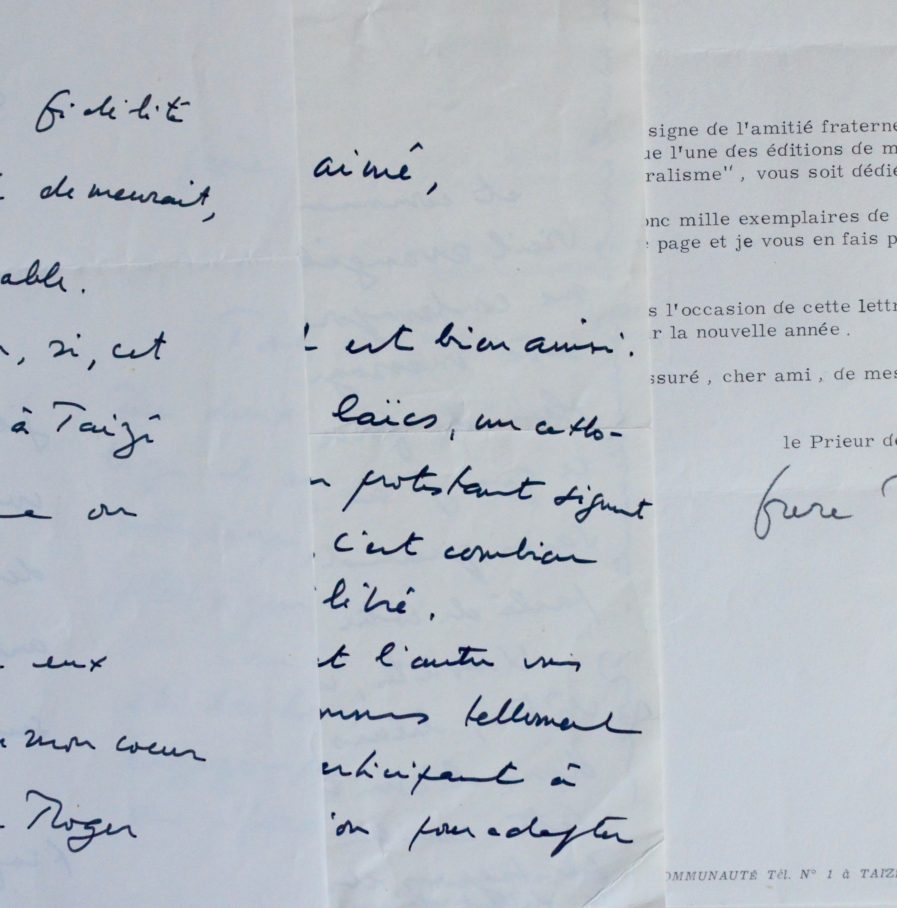 fidélité
demeurait,
able.
, si, cet
à Taizé
on
eux
mon coeur
Roger
aimé,
est bien ainsi.
laïcs, un catho-
protestant signent
, c'est combien
l'autre
tellement
articipant à
ion pour adapter
signe de l'amitié fraterne
ue l'une des éditions de m
ralisme", vous soit dédié
onc mille exemplaires de
page et je vous en fais p
s l'occasion de cette lettr
r la nouvelle année.
ssuré, cher ami, de mes
le Prieur de
frère
OMMUNAUTÉ Tél. N° 1 à TAIZÉ